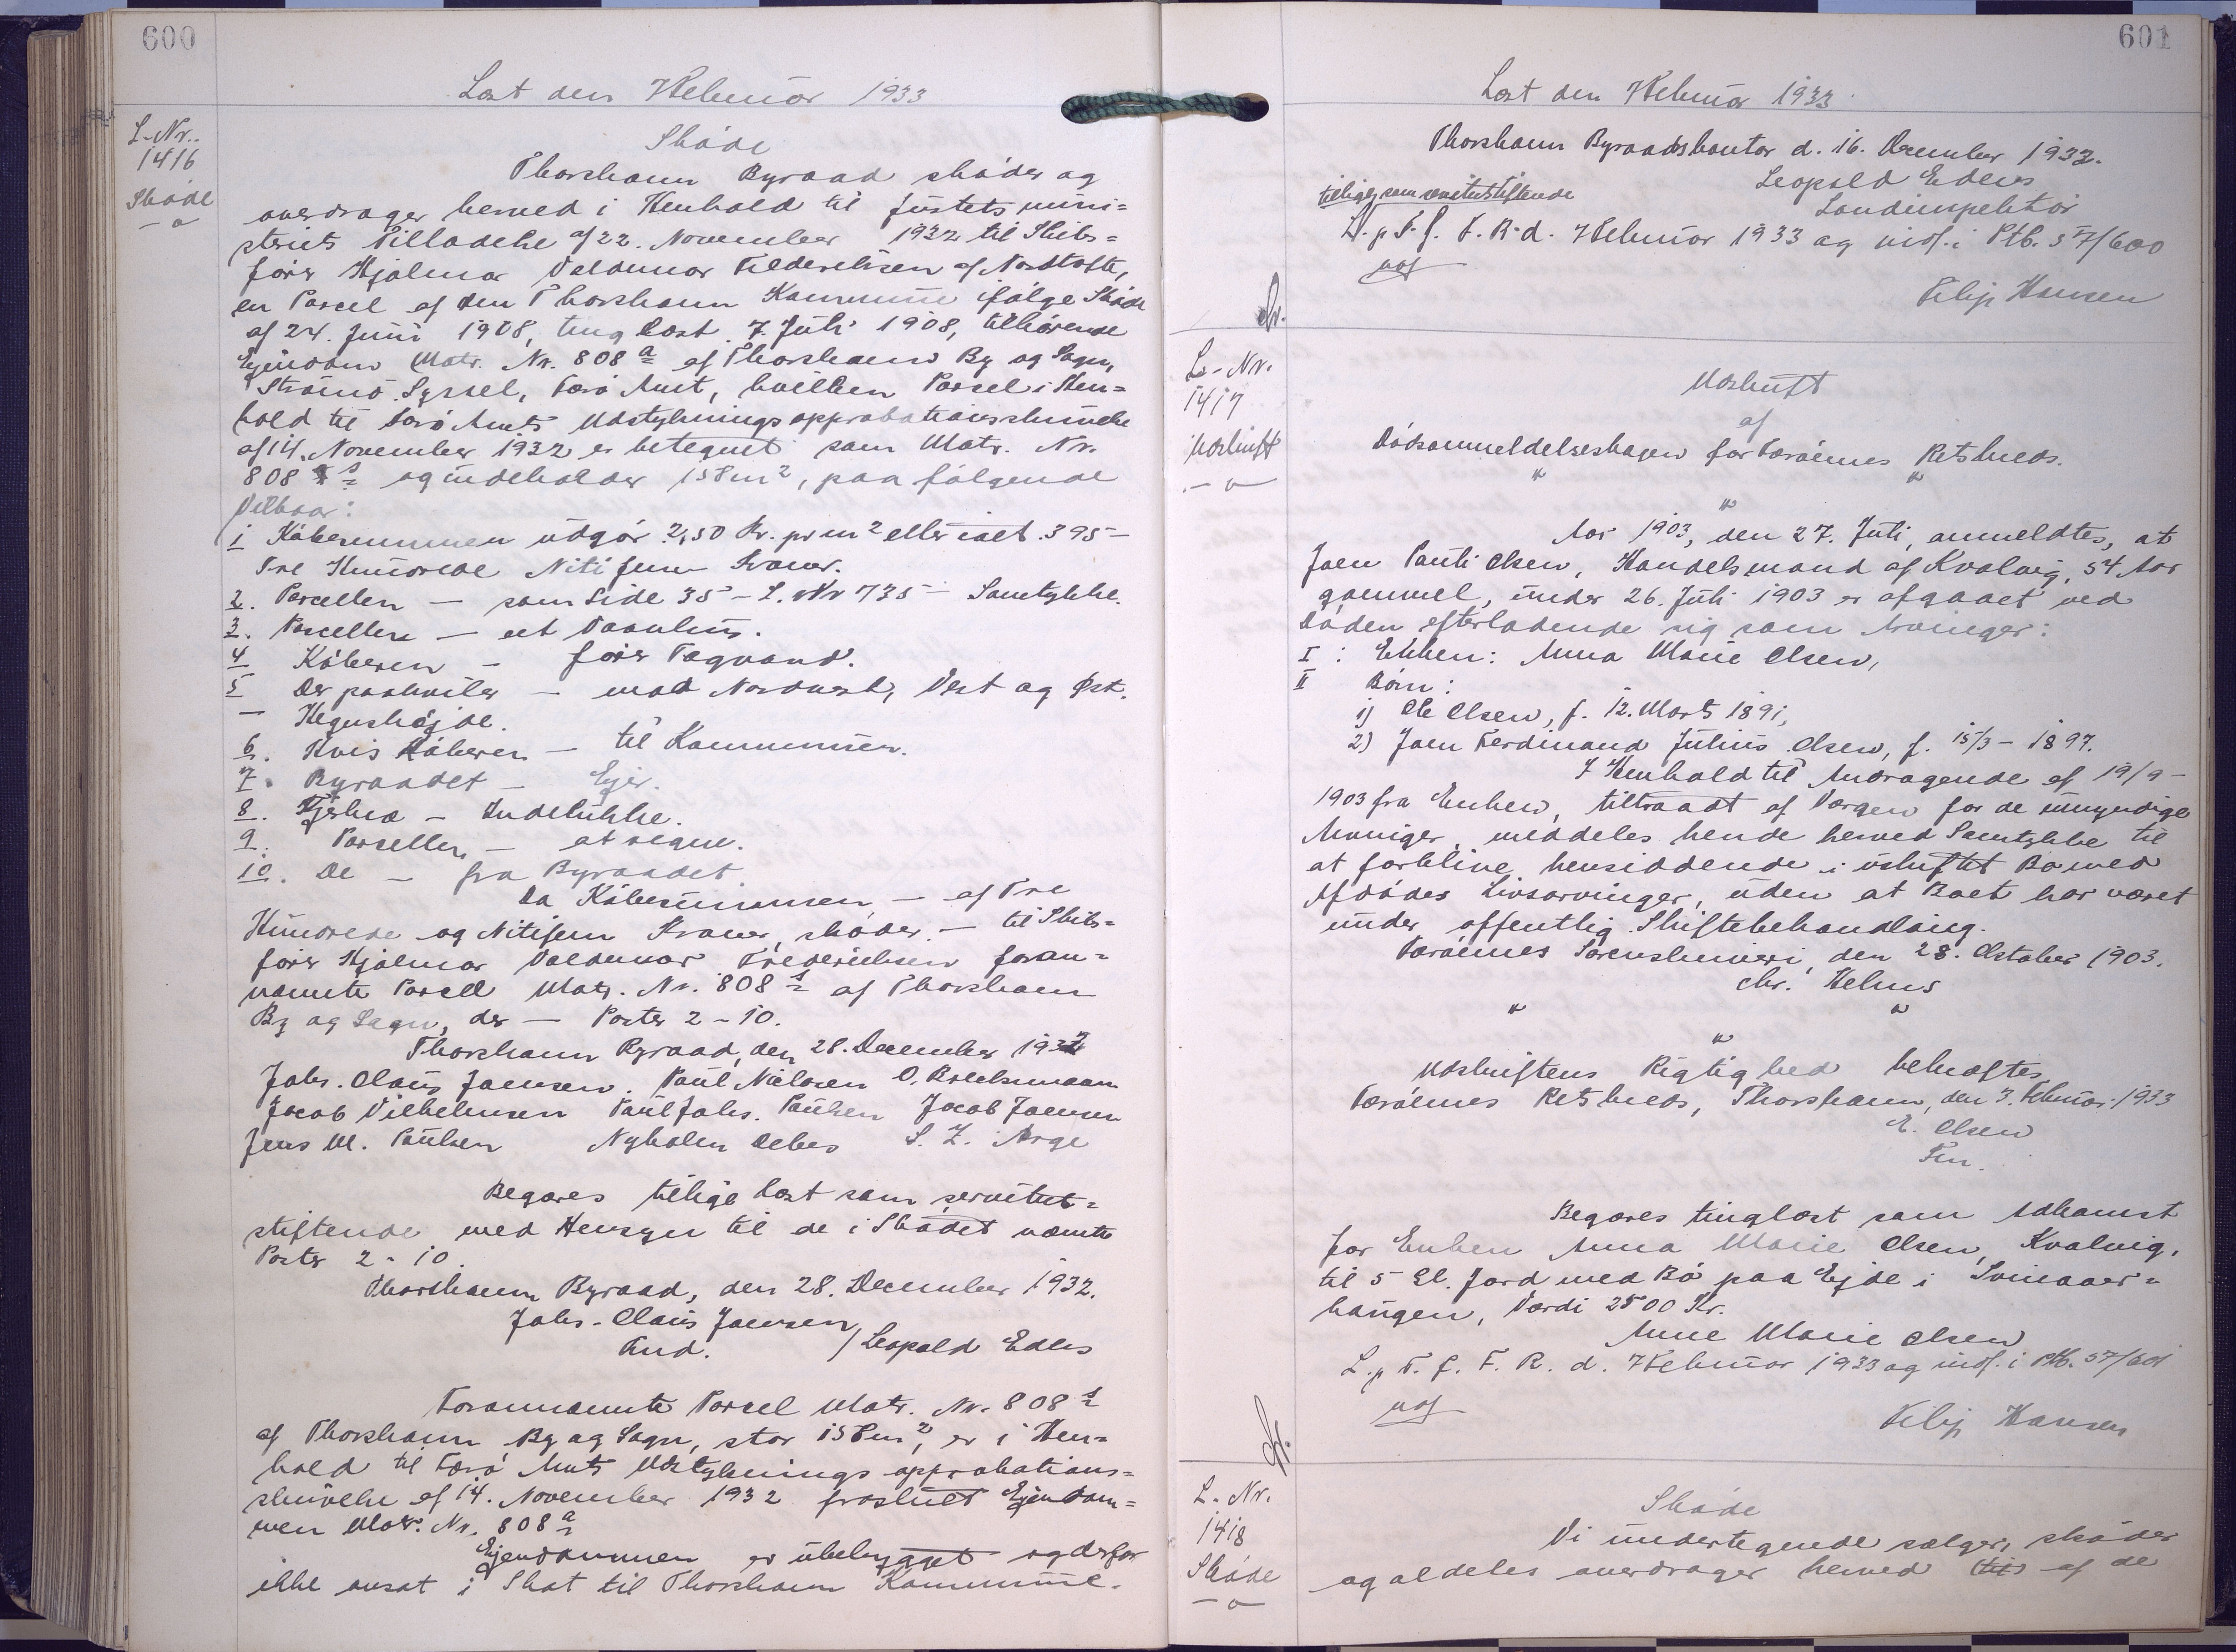 600
Læst den 7 Februar 1933
L.-Nr.
1416
Skøde
Skøde
Thorshavn Byraad skøder og
overdrager herved i Henhold til Justitsmini=
steriets Tilladelse af 22. November 1932 til Skibs=
fører Hjalmar Valdemar Frederiksen af Nordtofte,
en Parcel af den Thorshavn Kommune ifølge Skøde
af 24. Juni 1908, tinglæst 7. Juli 1908, tilhørende
Ejendom Matr. Nr. 808 a af Thorshavn By og Sogn,
Strømø Syssel, Færø Amt, hvilken Parcel i Hen=
hold til Færø Amts Udstykningsapprobationsskrivelse
af 14. November 1932 er betegnet som Matr. Nr.
808 s og indeholder 158 m², paa følgende
Vilkaar:
1 Købesummen udgør 2,50 Kr. pr m² eller ialt 395 –
Tre Hundrede Niti fem Kroner.
2. Parcellen – som Side 35 – L. Nr 735 – Samtykke.
3. Parcellen – et Vaanhus.
4 Køberen – fører Tagvand.
5 Der paahviler – mod Nordvest, Vest og Øst.
– Hegnshøjde.
6. Hvis Køberen – til Kommunen.
7. Byraadet – Ejer.
8. Fjerkræ – Indelukke.
9. Parcellen – at regne.
10. De – fra Byraadet
Da Købesummen – af Tre
Hundrede og Nitifem Kroner, skøder – til Skibs=
fører Hjalmar Valdemar Frederiksen foran=
nævnte Parcel Matr. Nr. 808 s af Thorshavn
By og Sogn, der – Poster 2 – 10.
Thorshavn Byraad, den 28. December 1932
Johs. Claus Jaensen. Paul Nielsen O. Brecksmann
Jacob Vilhelmsen Paul Johs. Paulsen Jacob Joensen
Jens M. Paulsen Nyholm Debes S. Z. Arge
Begæres tillige læst som servitut=
stiftende med Hensyn til de i Skødet nævnte
Poster 2 – 10.
Thorshavn Byraad, den 28. December 1932.
Johs. Claus Jaensen
Fmd. / Leopold Edlers
Forannævnte Parcel Matr. Nr. 808 s
af Thorshavn By og Sogn, stor 158 m², er i Hen=
hold til Færø Amts Udstyknings approbations=
skrivelse af 14. November 1932 fraskilt Ejendom=
men Matr. Nr. 808 a
Ejendommen er ubebygget og derfor
ikke ansat i Skat til Thorshavn Kommune.
601
Læst den 7 Februar 1933
Thorshavn Byraadskontor d. 16. December 1932.
Leopold Edlers
Landinspektør
tillige som servitutstiftende
L. p. T. f. F. R. d. 7 Februar 1933 og indf. i Ptb. 57/600
Filip Hansen
L.-Nr.
1417
Udskrift
Udskrift
af
Dødsanmeldelsesbogen for Færøernes Retskreds.
" "
"
Aar 1903, den 27. Juli, anmeldtes, at
Joen Pauli Olsen, Handelsmand af Kvalvig, 54 Aar
gammel, under 26. Juli 1903 er afgaaet ved
Døden efterladende sig som Arvinger:
I : Enken: Anna Marie Olsen,
II Børn:
1) Ole Olsen, f. 12. Marts 1891,
2) Joen Ferdinand Julius Olsen, f. 15/3 – 1897.
I Henhold til Andragende af 19/9 –
1903 fra Enken, tiltraadt af Værgen for de umyndige
Arvinger, meddeles hende herved Samtykke til
at forblive hensiddende i uskiftet Bo med
Afdødes Livsarvinger, uden at Boet har været
under offentlig Skiftebehandling.
Færøernes Sorenskriveri, den 28. October 1903.
Chr. Helms
" "
"
Udskriftens Rigtighed bekræftes
Færøernes Retskreds, Thorshavn, den 3. Februar 1933
E. Olsen
Fm.
Begæres tinglæst som Adkomst
for Enken Anna Marie Olsen, Kvalvig,
til 5 Gl. Jord med Bø paa Ejde i Svinaar=
haugen, Værdi 2500 Kr.
Anne Marie Olsen
L. p. T. f. F. R. d. 7 Februar 1933 og indf. i Ptb. 57/601
Filip Hansen
L. Nr.
1418
Skøde
Skøde
Vi undertegnede sælger, skøder
og aldeles overdrager herved (til) af de